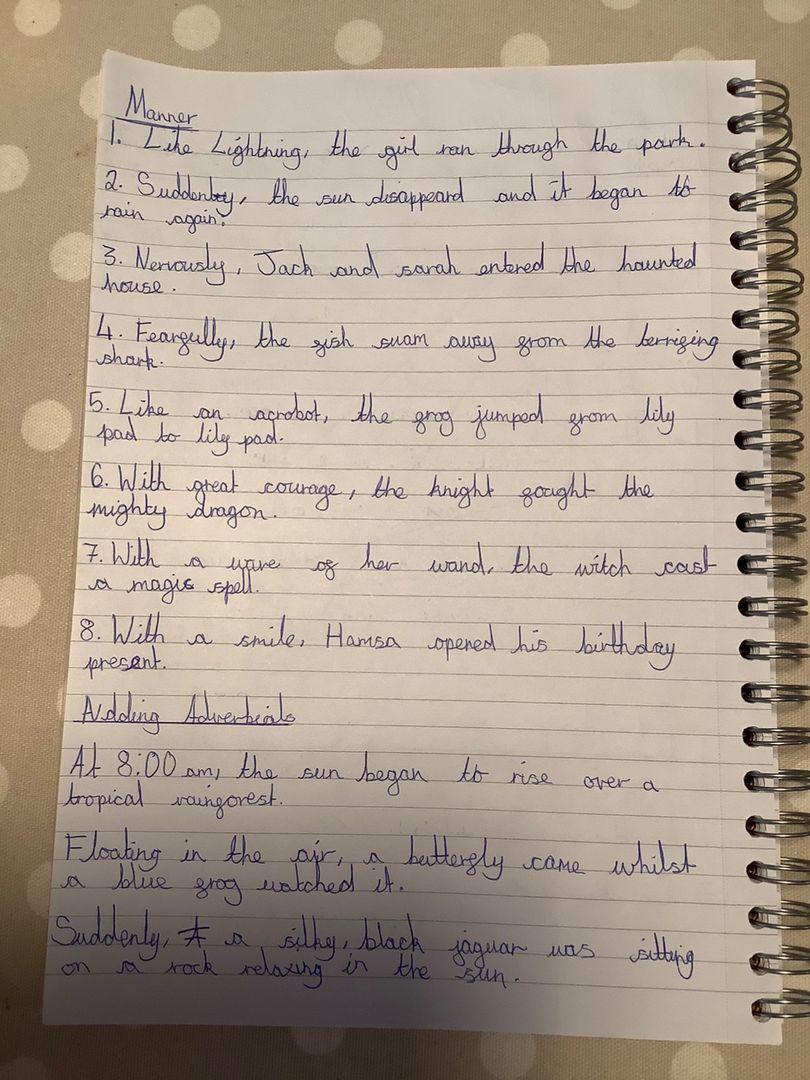 Manner
1. Like Lightning, the girl ran through the park.
2. Suddenly, the sun disappeard and it began to
rain again.
3. Nervously, Jack and sarah entered the haunted
house.
4. Fearfully, the fish swam away from the terrifing
shark.
5. Like an acrobot, the frog jumped from lily
pad to lily pad.
6. With great courage, the knight fought the
mighty dragon.
7. With a wave of her wand, the witch cast
a magic spell.
8. With a smile, Hamsa opened his birthday
present.
Adding Adverbials
At 8:00 am, the sun began to rise over a
tropical rainforest.
Floating in the air, a butterfly came whilst
a blue frog watched it.
Suddenly, a silky, black jaguar was sitting
on a rock relaxing in the sun.